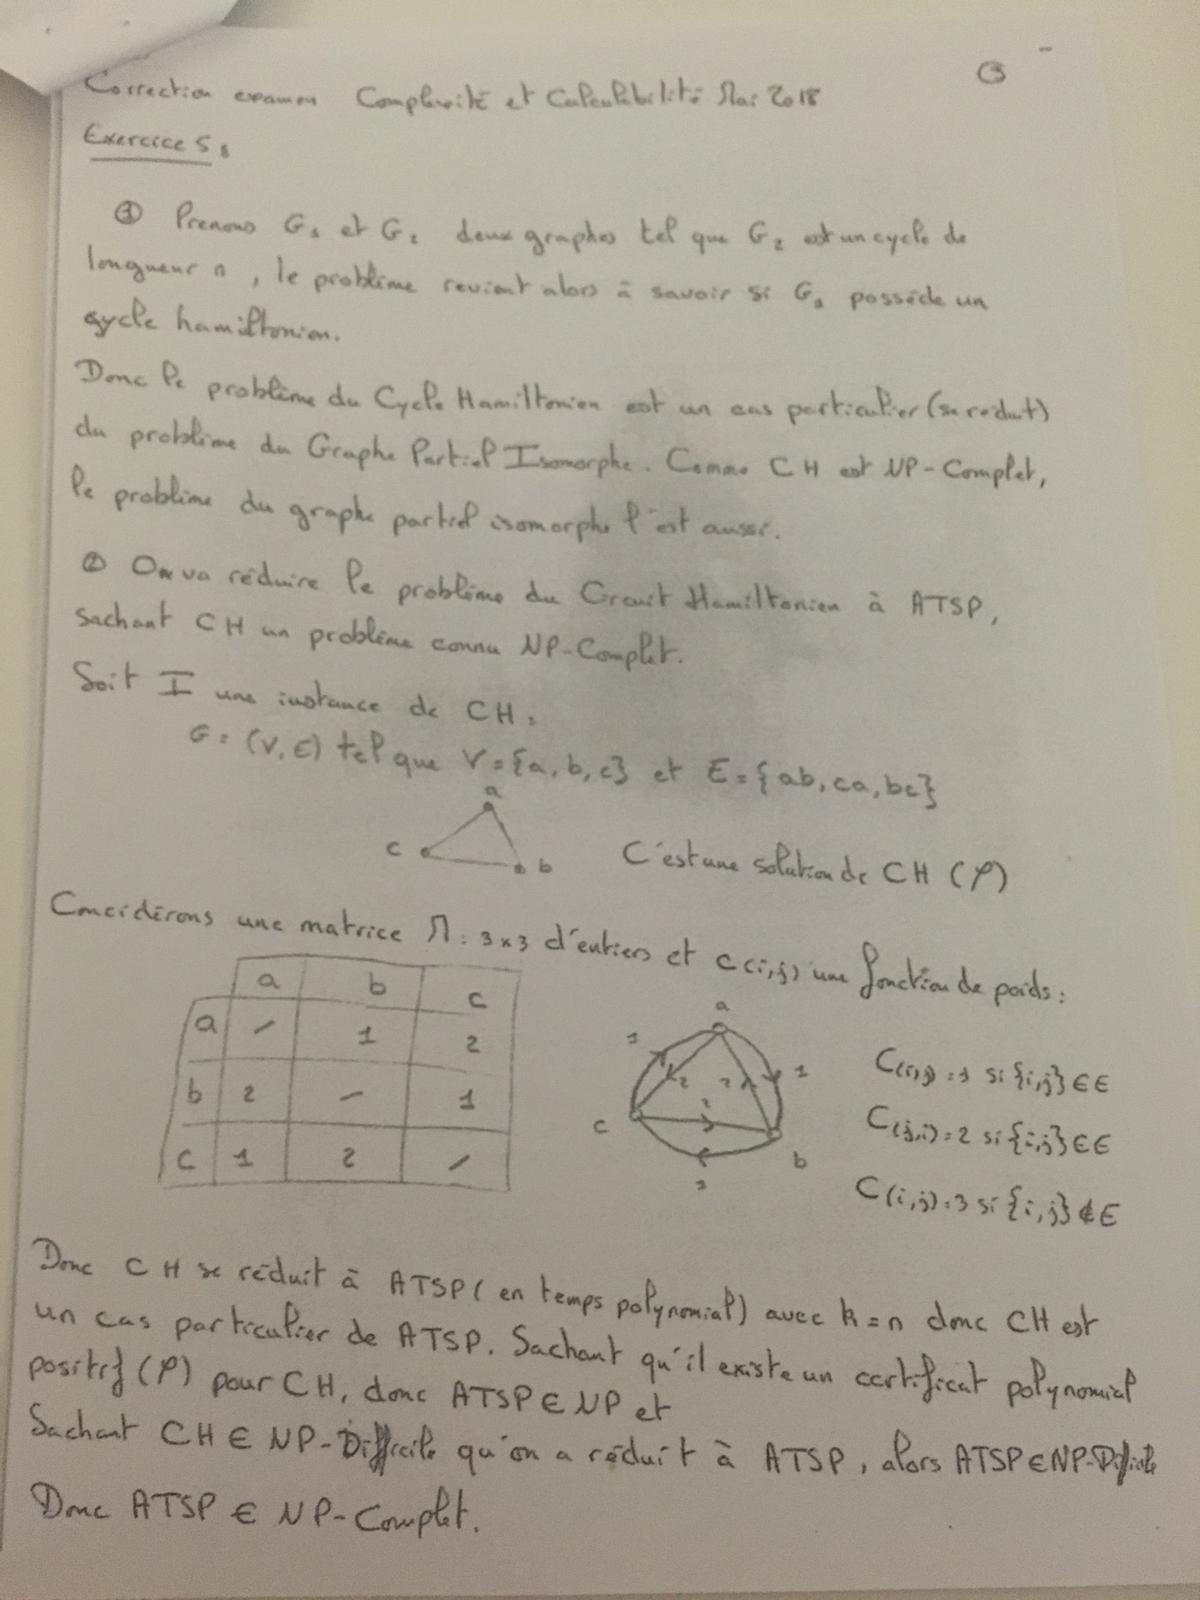 ③
Correction examen Complexité et Calculabilité Mai 2018
Exercice 5 :
① Prenons G1 et G2 deux graphes tel que G2 est un cycle de
longueur n, le problème revient alors à savoir si G1 possède un
cycle hamiltonien.
Donc le problème du Cycle Hamiltonien est un cas particulier (se réduit)
du problème du Graphe Partiel Isomorphe. Comme CH est NP-Complet,
le problème du graphe partiel isomorphe l'est aussi.
② On va réduire le problème du Circuit Hamiltonien à ATSP,
sachant CH un problème connu NP-Complet.
Soit I une instance de CH :
G = (V, E) tel que V = {a, b, c} et E = {ab, ca, bc}
a
c b C'est une solution de CH (φ)
Concidérons une matrice M : 3×3 d'entiers et c(i,j) une fonction de poids :
a b c
a / 1 2
b 2 / 1
c 1 2 /
a
1 2 2 1
c 2 b
1
C(i,j) = 1 si {i,j} ∈ E
C(j,i) = 2 si {i,j} ∈ E
C(i,j) = 3 si {i,j} ∉ E
Donc CH se réduit à ATSP (en temps polynomial) avec k = n donc CH est
un cas particulier de ATSP. Sachant qu'il existe un certificat polynomial
positif (φ) pour CH, donc ATSP ∈ NP et
Sachant CH ∈ NP-Difficile qu'on a réduit à ATSP, alors ATSP ∈ NP-Difficile
Donc ATSP ∈ NP-Complet.